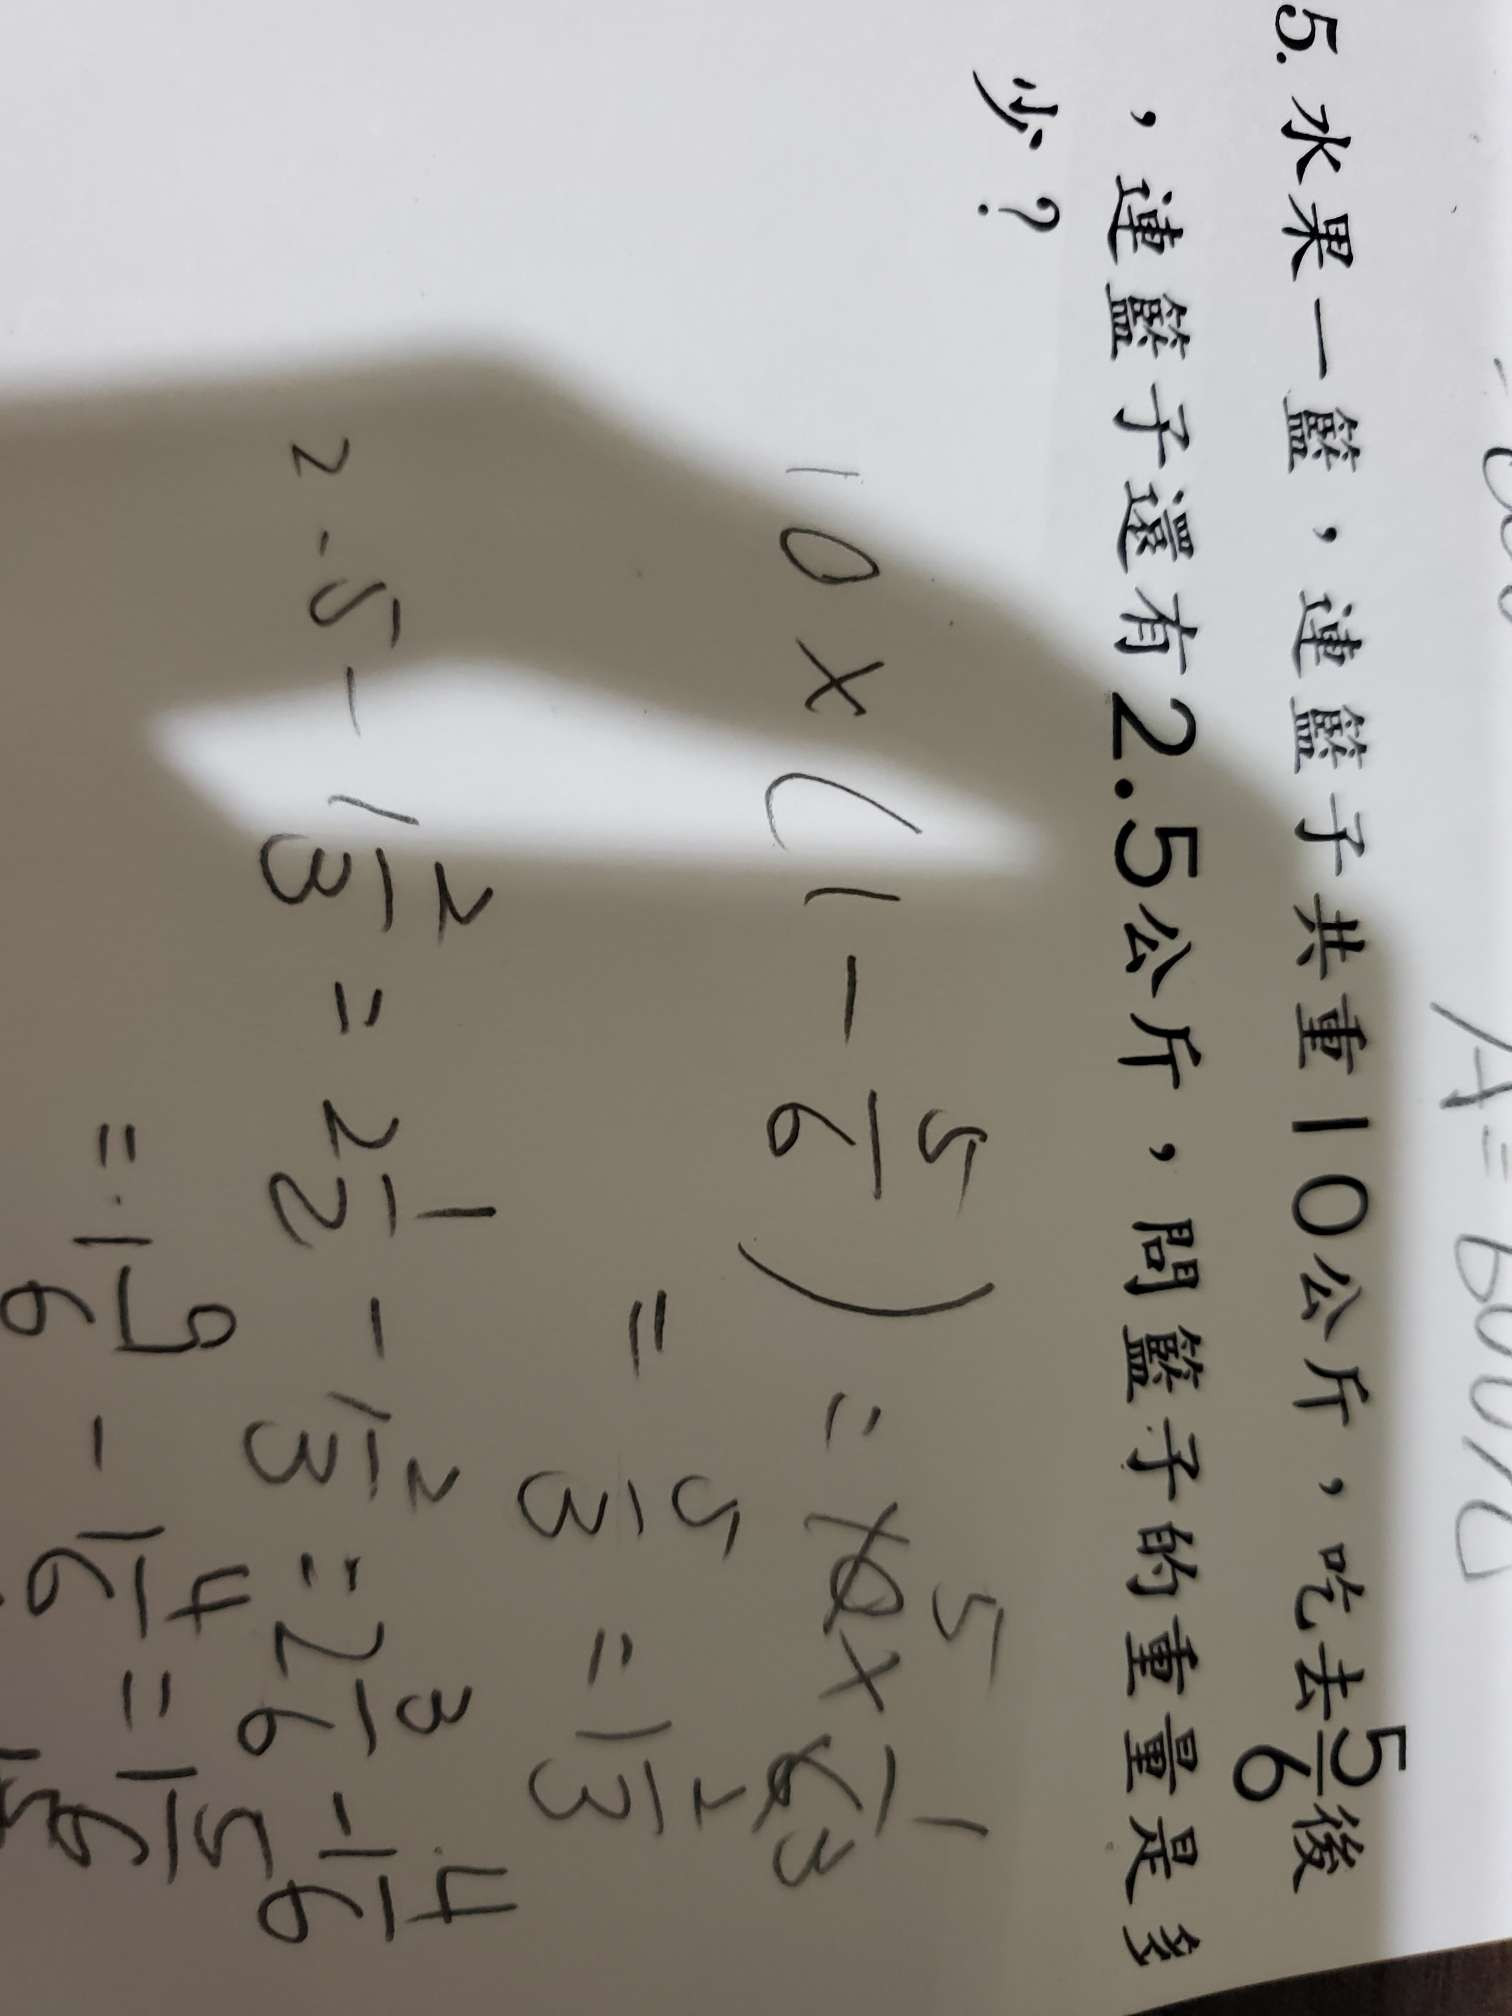 A=
5. 水果一籃，連籃子共重10公斤，吃去5/6後
，連籃子還有2.5公斤，問籃子的重量是多
少？
10×(1-5/6)=10×1/6 5 3
=5/3=1 2/3
2.5-1 2/3=2 1/2-1 2/3=2 3/6-1 4/6
=1 9/6-1 4/6=1 5/6